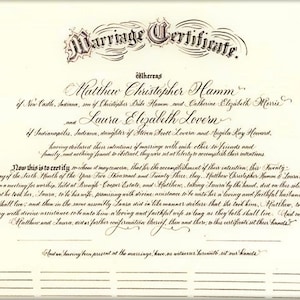 Marriage Certificate.
Whereas
Matthew Christopher Hamm
of New Castle, Indiana, son of Christopher Dale Hamm and Catherine Elizabeth Morris
and
Laura Elizabeth Lovern
of Indianapolis, Indiana, daughter of Steven Lovern and Angela Kay
having declared their intentions of marriage with each other to friends and
family, and nothing found to obstruct, they were set at liberty to accomplish their intentions
Now this is to certify that for the accomplishment of this intention, this Twenty
day of the Month of the Year Two Thousand and Twenty Three, they, Matthew Christopher Hamm & Laura
in a meeting for worship, held at taking Laura by the hand, did on this
to be his wife, promising with divine assistance to be unto her a loving and faithful husband
shall live; and then in the same assembly Laura did in like manner declare that she took him, Matthew, to
with divine assistance to be unto him a loving and faithful wife so long as they both shall live. And
Matthew and Laura, as a further confirmation thereof, then and there, to this certificate set their hands.
And we, having been present at the marriage, have as witnesses hereunto set our hands.